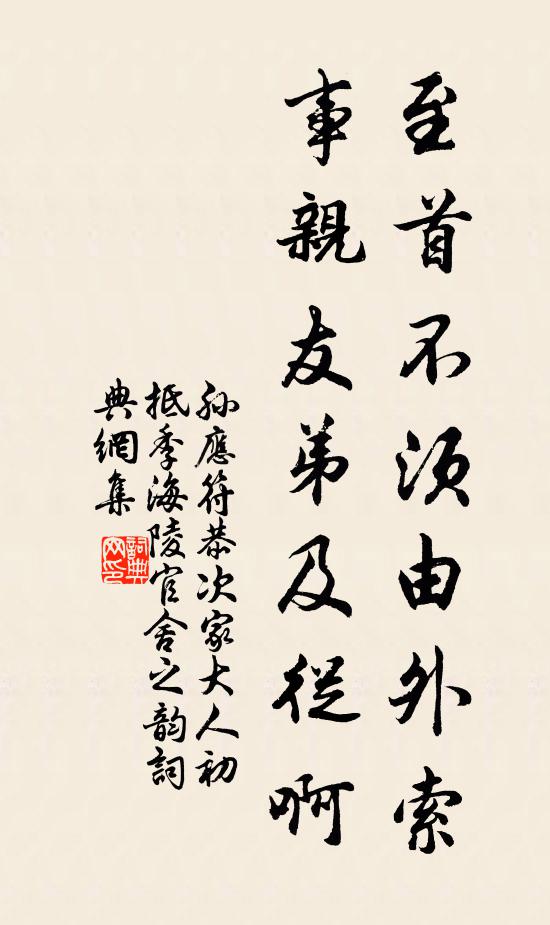 至首不须由外索
事親友弟及從啊
孙應符恭次家大人初
抵季海陵官舍之韵詞
典網集
詞典
网印